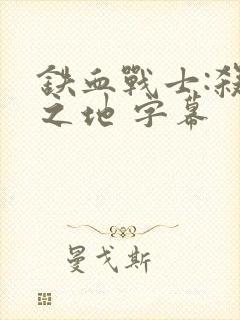 鉄血戰士:殺
之地 字幕
曼戈斯